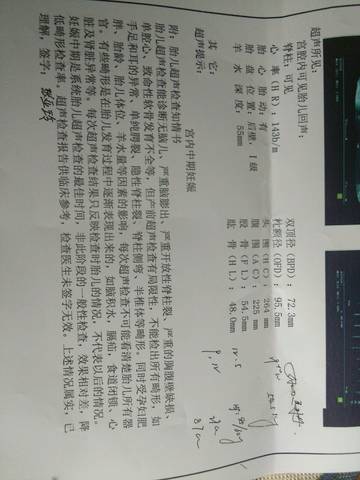 超声所见：
宫腔内可见胎儿回声：
脊柱：可见
心 率（H R）：143b/m
胎 心 胎 动：有
胎 盘 位 置：后壁 I 级
羊 水 深 度：55mm
双顶径（BPD）：72.3mm
枕额径（OFD）：95.5mm
头 围（H C）：264 mm
腹 围（A C）：225 mm
股 骨（F L）：54.5mm
肱 骨（H L）：48.0mm
其 它：
超声提示：
宫内中期妊娠
附：胎儿超声检查知情书
胎儿超声检查能诊断无脑儿、严重脑膨出、严重开放性脊柱裂、严重的胸腹壁缺损、
单腔心、致命性软骨发育不全等，但产前超声检查有局限性，不能检出所有畸形，如
手足和耳的异常、单纯腭裂、隐性脊柱裂、脊柱侧弯、半椎体等畸形。同时受孕妇肥
胖、胎龄、胎儿体位、羊水量等因素的影响，每次超声检查不可能看清楚胎儿所有器
官。有些畸形是在胎儿发育过程中逐渐表现出来的，如脑积水、膈疝、食道闭锁、心
脏及肾脏异常等。每次超声检查结果只反映检查时胎儿的情况，不代表以后的情况。
妊娠中期是系统胎儿超声检查的最佳时间，非此阶段的一般性检查，效果相对差，降
低畸形检查率。超声检查报告供临床参考，检查医生未签字无效。上述情况属实，已
理解，签字：